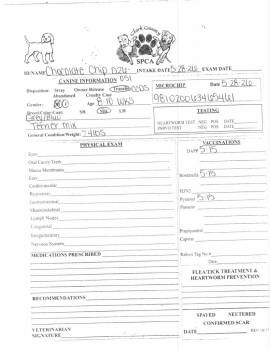 Clark County
SPCA
RENAME Chocolate Chip INTAKE DATE 5-28-20 EXAM DATE
CANINE INFORMATION 051
Disposition: Stray Owner Release Transfer
Abandoned Cruelty Case
Gender: Age 8-10 wks
SM LM
Grey/Blue
Terrier Mix
General Condition/Weight: 7.4 lbs
MICROCHIP Date 5-28-20
981020063465461
TESTING
HEARTWORM TEST NEG POS DATE
PARVO TEST NEG POS DATE
PHYSICAL EXAM
Eyes
Oral Cavity/Teeth
Mucus Membranes
Ears
Cardiovascular
Respiratory
Gastrointestinal
Musculoskeletal
Lymph Nodes
Urogenital
Integumentary
Nervous System
VACCINATIONS
DAPP 5-15
Bordetella 5-15
Pyrantel 5-15
Praziquantel
Capstar
Rabies Tag No
Date
MEDICATIONS PRESCRIBED
FLEA/TICK TREATMENT &
HEARTWORM PREVENTION
RECOMMENDATIONS
SPAYED NEUTERED
CONFIRMED SCAR
VETERINARIAN
SIGNATURE
DATE